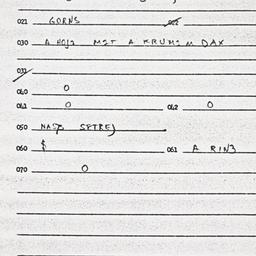 021 GORNS 022
030 A HOJI MIT A KRUMIM DAX
032
040 O
041 O 042 O
050 SPTREJ
060 $ 061 A RIN3
070 O